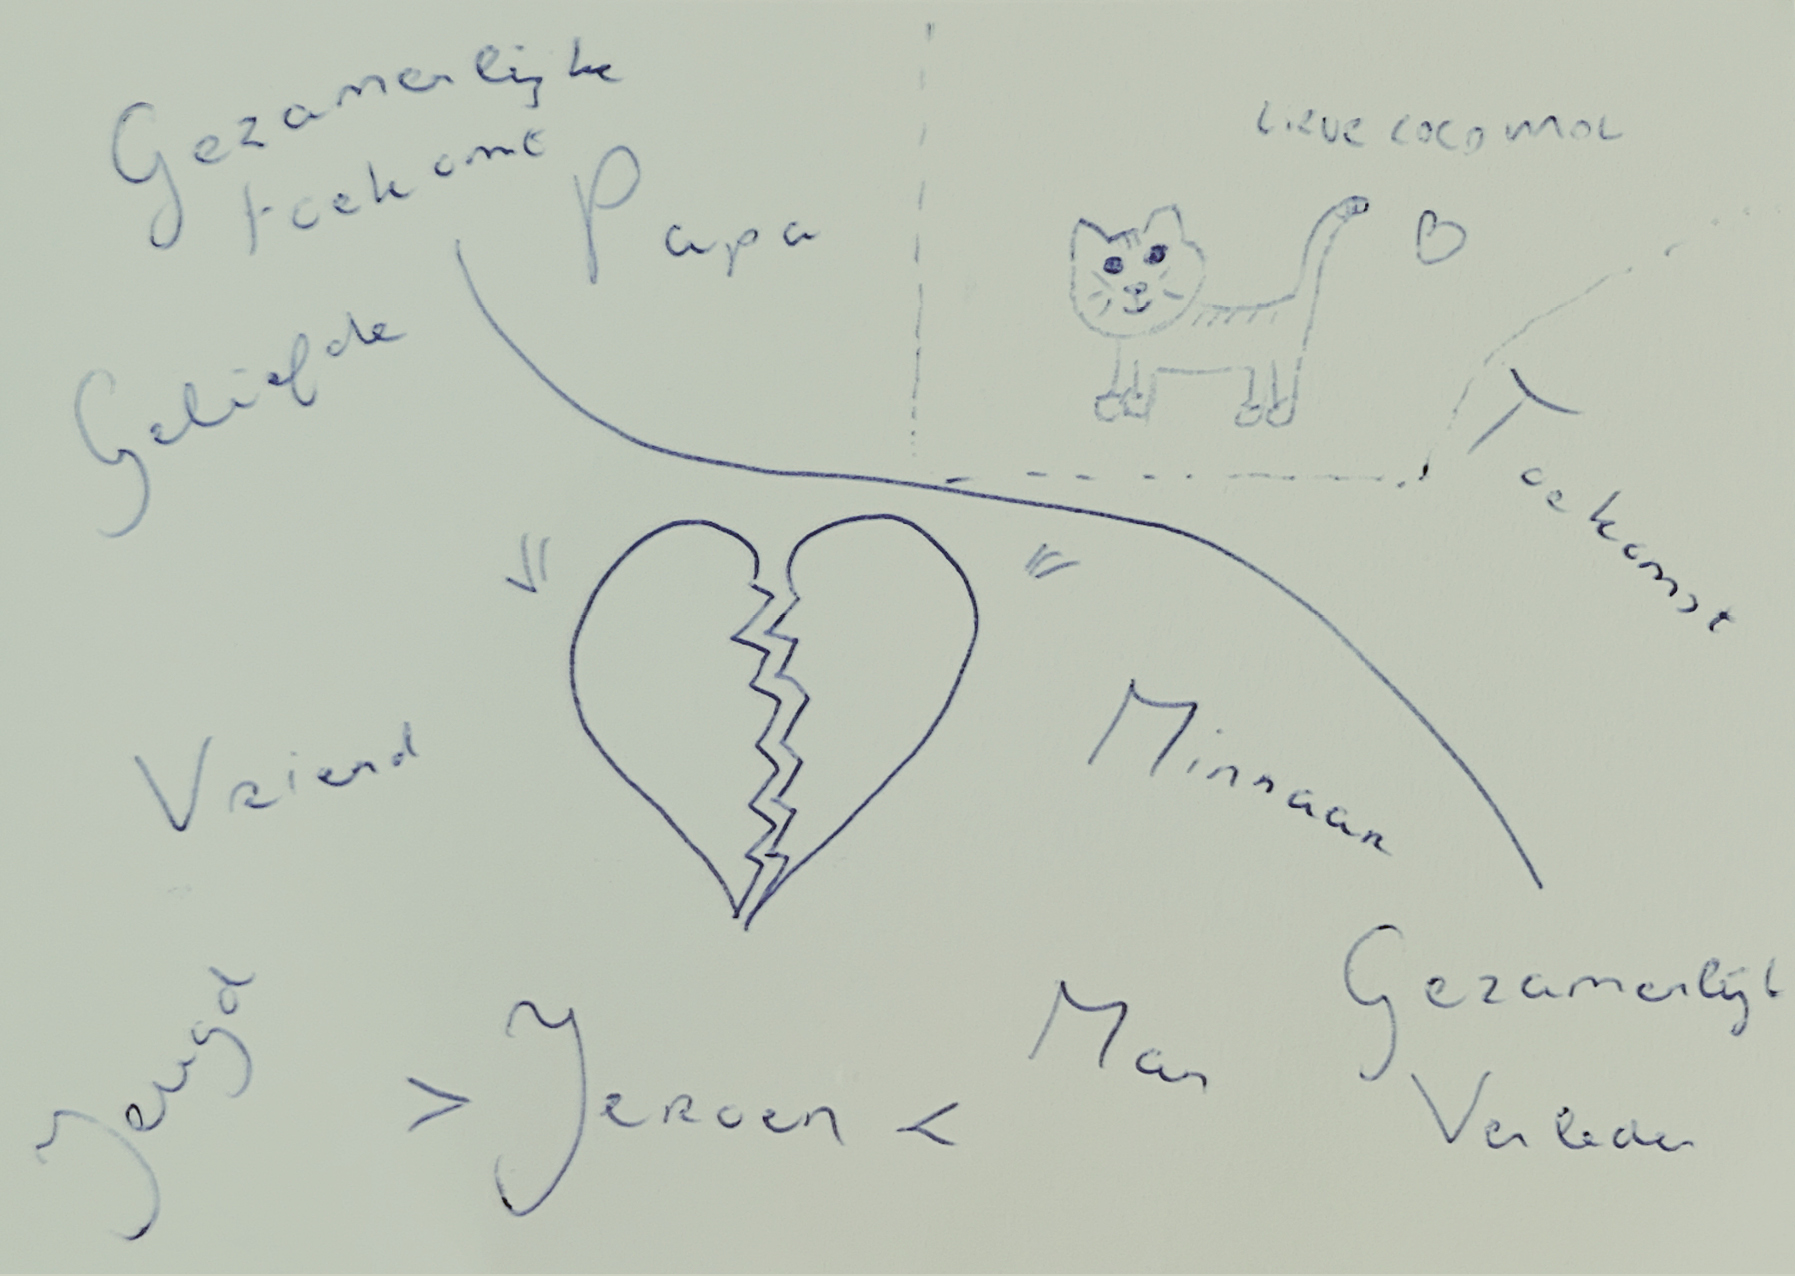 Gezamenlijke
toekomt
Papa
LIEVE COCO MOL
Geliefde
Toekomst
Vriend
Minnaar
Jeugd
> Jeroen <
Man
Gezamenlijk
Verleden